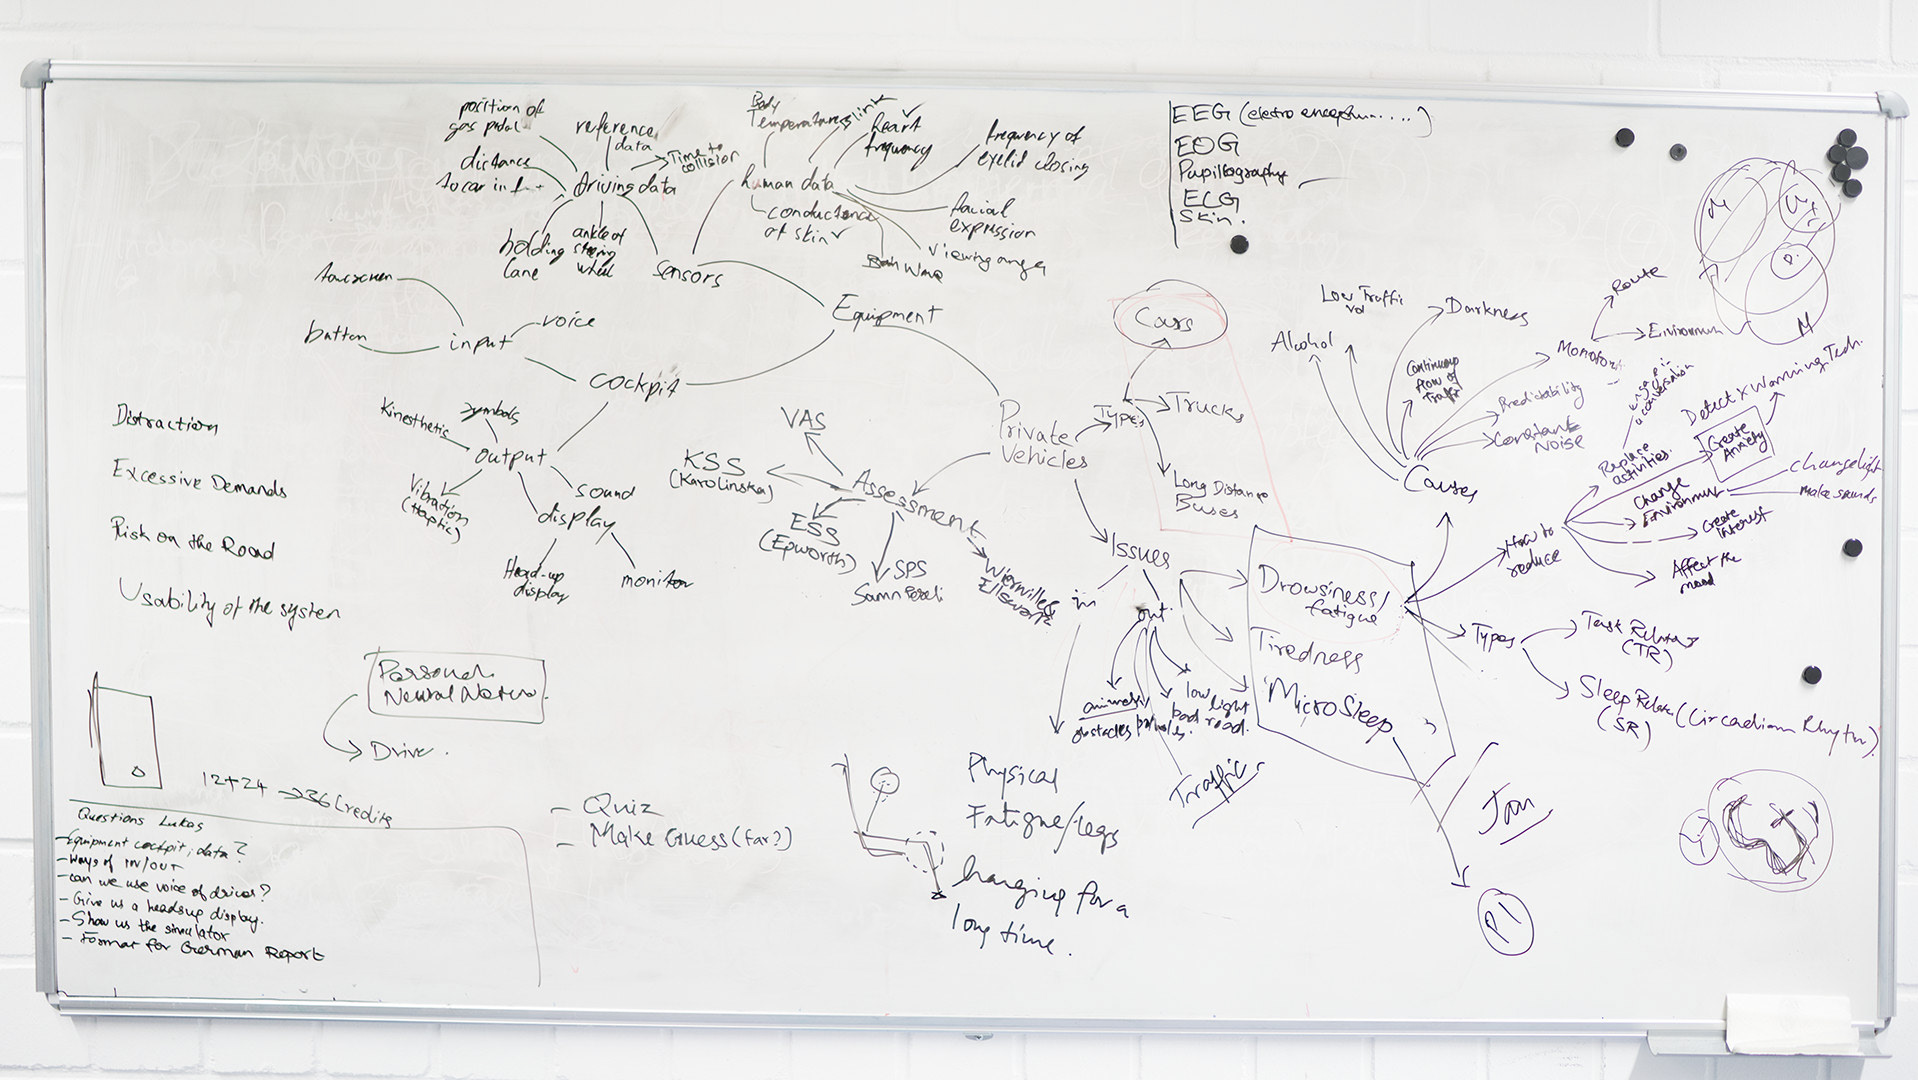 position of
gas pedal
distance
to car in
reference
data
Time to
collision
driving data
holding
lane
steering
wheel
sensors
Body
Temperature
heart
frequency
human data
conductance
of skin
frequency of
eyelid closing
facial
expression
viewing angel
EEG (electro encephum....)
EOG
Pupillography
ECG
Skin.
Equipment
touscreen
button
voice
input
cockpit
Kinesthetic
symbols
output
Vibration
(Haptic)
sound
display
Head-up
display
monitor
Distraction
Excessive Demands
Risk on the Road
Usability of the system
Private
Vehicles
VAS
KSS
(Karolinska)
Assessment
ESS
(Epworth)
SPS
Samn Pereli
Wierwille &
Ellsworth
Cars
Types
Trucks
Long Distance
Buses
Issues
in
out
animals
obstacles
potholes.
bad road.
low light
Traffic
Physical
Fatigue/legs
hanging for a
long time.
Drowsiness/
fatigue
Tiredness
MicroSleep
Causes
Alcohol
Low Traffic
vol
Darkness
Continuous
flow of
Traffic
Monoton
Route
Environmun
Predictability
Constant
Noise
How to
reduce
Replace
activities.
engage in
conversation
Detect & Warning Tech.
Create
Anxiety
Change
Environment
change light
make sounds
Create
Interest
Affect the
mood
Types
Task Related
(TR)
Sleep Relate (Circadian Rhythm)
(SR)
M
P1
Personal
Neural Networ.
Drive.
12+24 → 36 Credits
Questions Lukas
- Equipment cockpit, data?
- Ways of in/out
- can we use voice of driver?
- Give us a headsup display.
- Show us the simulator
- Format for German Report
- Quiz
- Make Guess (far?)